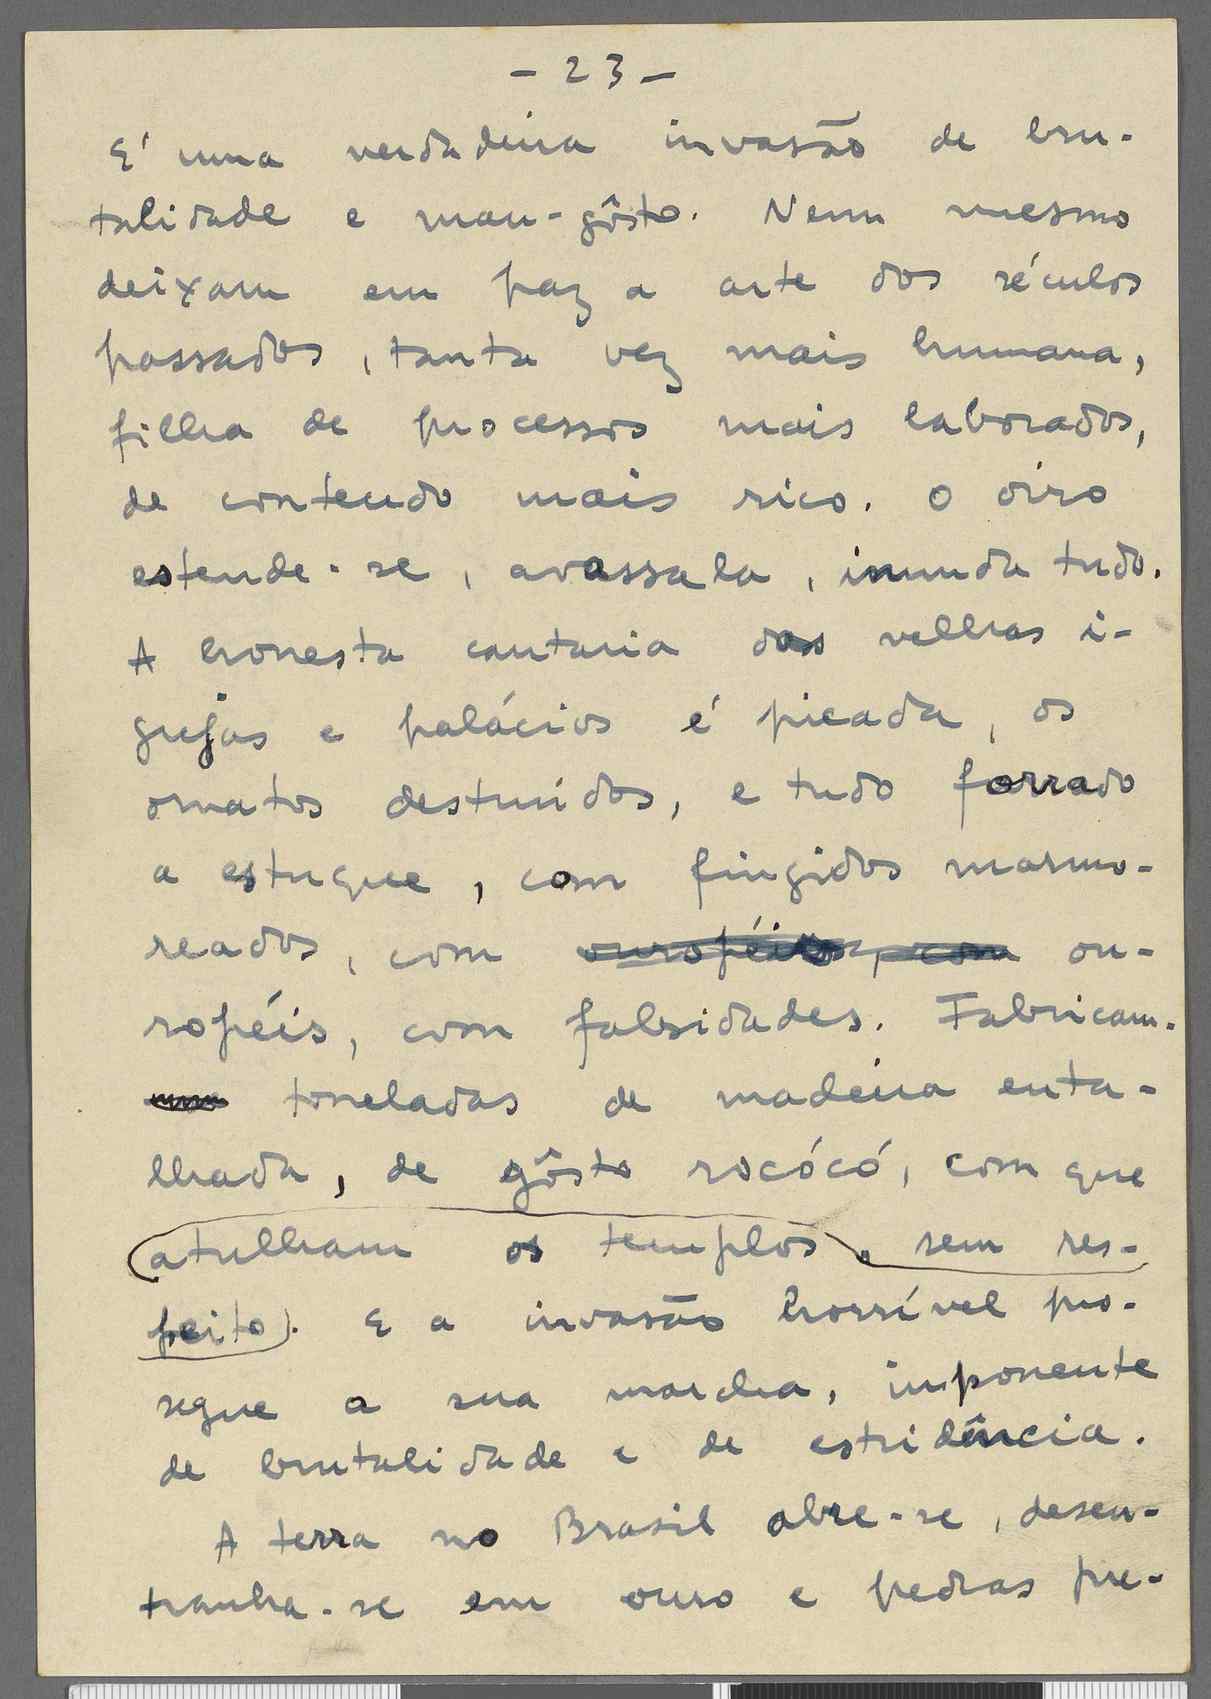 - 23 -
E' uma verdadeira invasão de bru-
talidade e mau-gôsto. Nem mesmo
deixam em paz a arte dos séculos
passados, tanta vez mais humana,
filha de processos mais laborados,
de contendo mais rico. O oiro
estende-se, avassala, inunda tudo.
A honesta cantaria das velhas i-
grejas e palácios é picada, os
ornatos destruídos, e tudo forrado
a estuque, com fingidos marmo-
reados, com ouropéis, com ou-
ropéis, com falsidades. Fabricam-
toneladas de madeira enta-
lhada, de gôsto rócócó, com que
atulham os templos, sem res-
peito). E a invasão horrível pro-
segue a sua marcha, imponente
de brutalidade e de estridência.
A terra no Brasil abre-se, desen-
tranha-se em ouro e pedras pre-